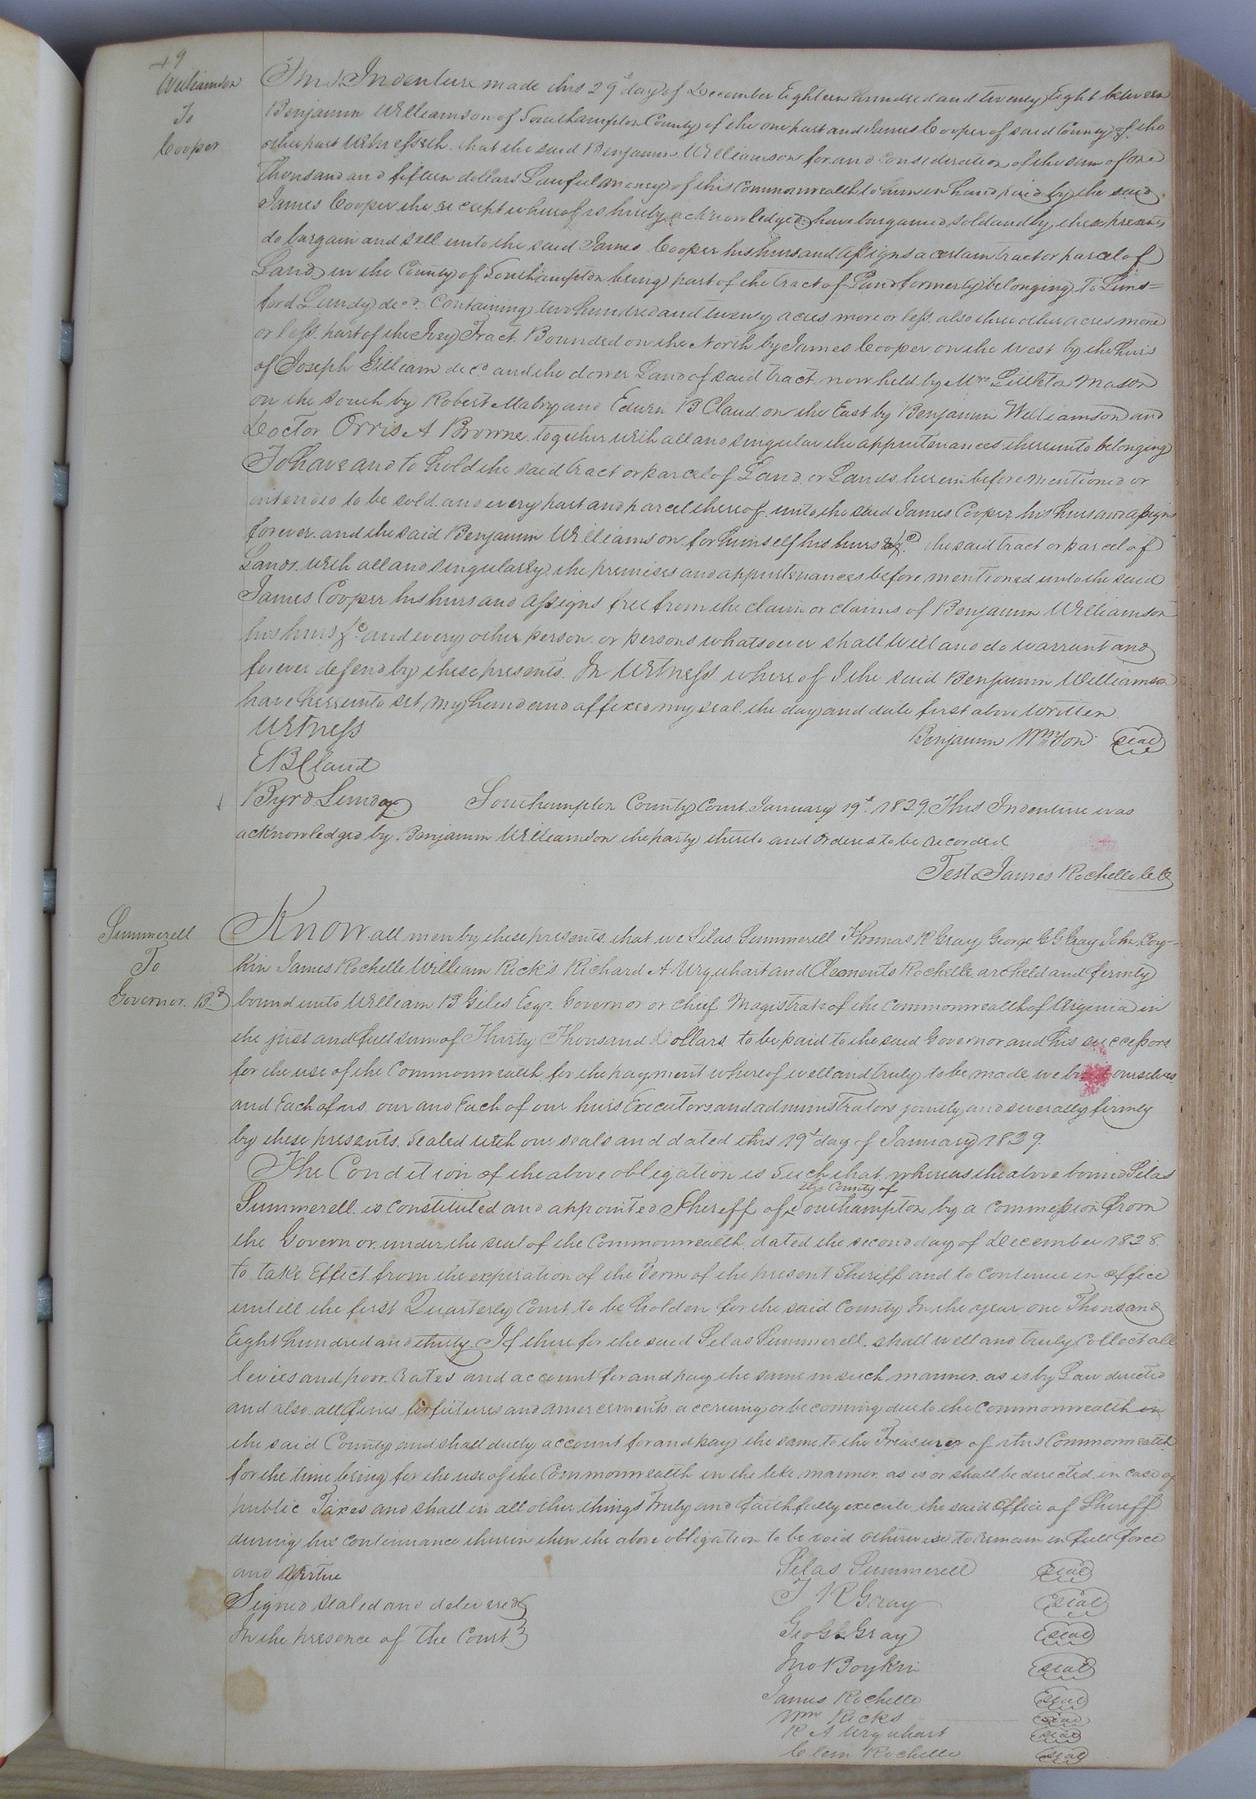 49
Williamson
To
Cooper
This Indenture made this 29th day of December Eighteen hundred and twenty Eight between
Benjamin Williamson of Southampton County of the one part and James Cooper of said County of the
other part Witnesseth. that the said Benjamin Williamson for and consideration of the sum of one
Thousand and fifteen dollars Lawful money of this commonwealth to him in hand paid by the said
James Cooper the receipt whereof is hereby acknowledged have bargained sold and by these presents
do bargain and sell unto the said James Cooper his heirs and assigns a certain tract or parcel of
Land in the County of Southampton being part of the tract of Land formerly belonging To Luns=
ford Lundy decd. Containing two hundred and twenty acres more or less. also three other acres more
or less. part of the Ivey Tract. Bounded on the North by James Cooper on the west by the heirs
of Joseph Gilliam decd and the dower Land of said tract now held by Mrs Littleton Mason
on the south by Robert Mabry and Edwin B Claud on the East by Benjamin Williamson and
Doctor Orris A Browne together with all and singular the appurtenances thereunto belonging
To have and to hold the said tract or parcel of Land or Lands herein before mentioned or
intended to be sold and every part and parcel thereof unto the said James Cooper his heirs and assigns
forever and the said Benjamin Williamson for himself his heirs &c the said tract or parcel of
Lands with all and singularly the premises and appurtenances before mentioned unto the said
James Cooper his heirs and assigns free from the claim or claims of Benjamin Williamson
his heirs &c and every other person or persons whatsoever shall will and do warrant and
forever defend by these presents. In Witness whereof I the said Benjamin Williamson
have hereunto set my hand and affixed my seal the day and date first above written
Witness
Benjamin Wmson seal
E B Claud
Byrd Lundy
Southampton County Court January 19th 1829. This Indenture was
acknowledged by Benjamin Williamson the party thereto and ordered to be recorded
Test James Rochelle C C
Summerell
To
Governor. Bd
Know all men by these presents that we Silas Summerell Thomas R Gray George C G Gray John Boy-
kin James Rochelle William Ricks Richard A Urquhart and Clements Rochelle are held and firmly
bound unto William B Giles Esqr. Governor or chief Magistrate of the commonwealth of Virginia in
the just and full sum of Thirty Thousand Dollars to be paid to the said Governor and his successors
for the use of the Commonwealth for the payment whereof well and truly to be made we bind ourselves
and Each of us our and Each of our heirs Executors and administrators jointly and severally firmly
by these presents. sealed with our seals and dated this 19th day of January 1829.
The Condition of the above obligation is such that whereas the above bound Silas
Summerell is constituted and appointed Sheriff of the County of Southampton by a commission from
the Governor under the seal of the Commonwealth dated the second day of December 1828.
to take Effect from the expiration of the Term of the present Sheriff and to continue in office
until the first Quarterly Court to be holden for the said County In the year one Thousand
Eight hundred and thirty. If therefor the said Silas Summerell. shall well and truly Collect all
levies and poor Rates and account for and pay the same in such manner as is by Law directed
and also all fines forfeitures and amercements accruing or becoming due to the Commonwealth in
the said County and shall duely account for and pay the same to the Treasurer of this Commonwealth
for the time being for the use of the Commonwealth in the like manner as is or shall be directed in case of
public Taxes and shall in all other things Truly and faithfully execute the said office of Sheriff
during his continuance therein then the above obligation to be void otherwise to remain in full force
and virtue
Silas Summerell seal
Signed sealed and delivered
T R Gray seal
In the presence of The Court
Geo G Gray seal
Jno Boykin seal
James Rochelle seal
Wm Ricks seal
R A Urquhart seal
Clem Rochelle seal